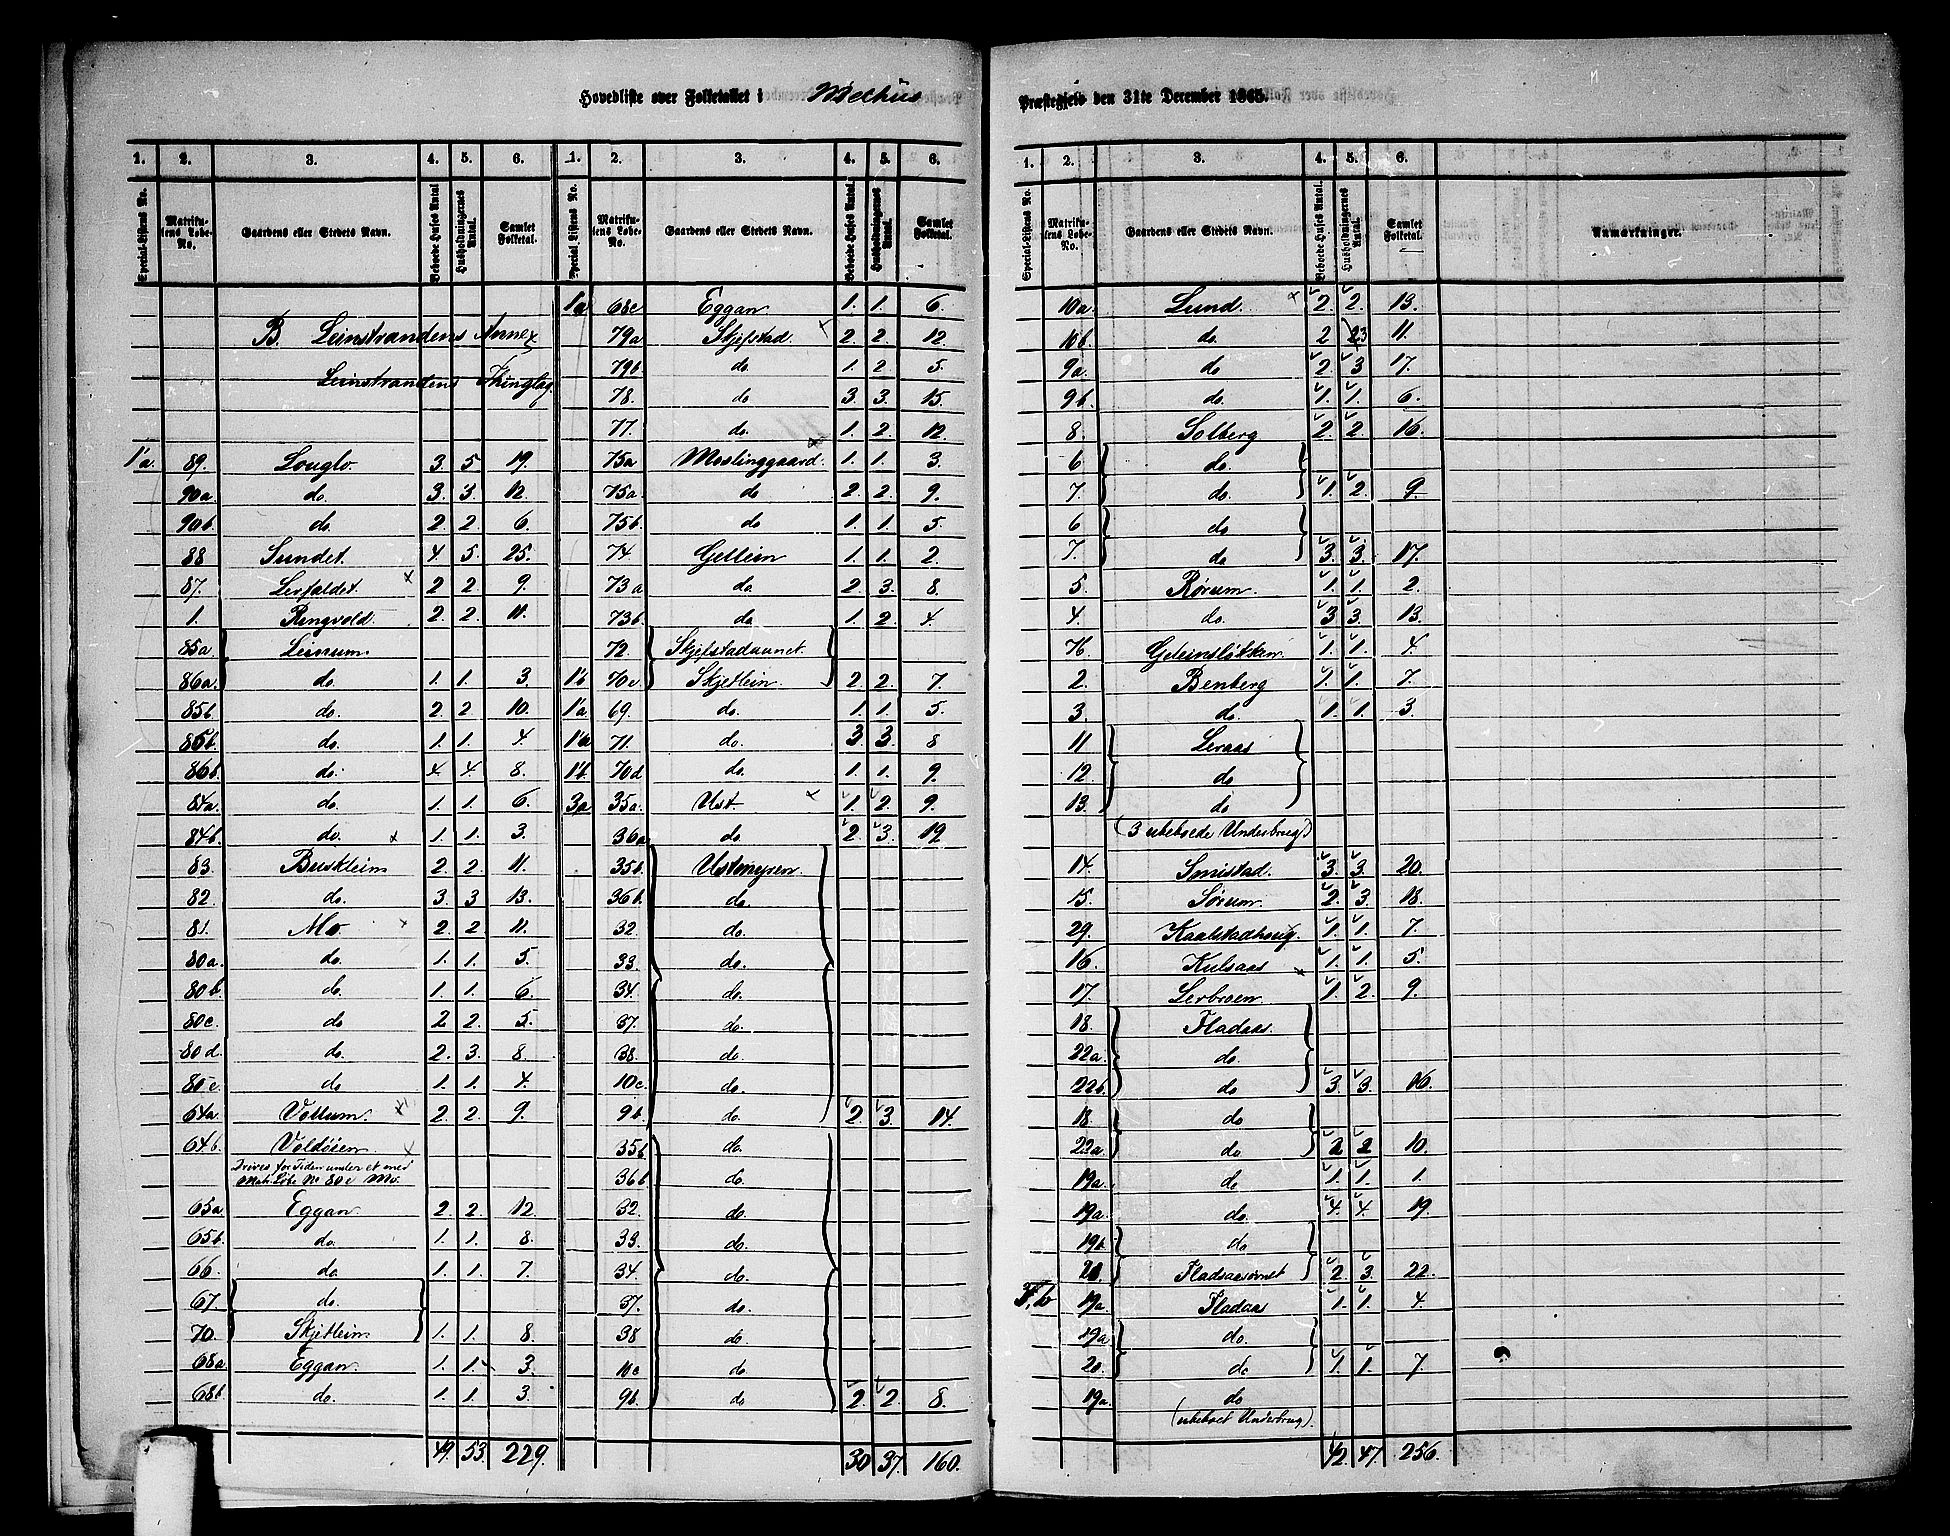 Hovedliste over Folketallet i Melhus
Præstegjeld den 31te December 1865.
1. 2. 3. 4. 5. 6. 1. 2. 3. 4. 5. 6.
Special-Listens No. Matrikulens Løbe-No. Gaardens eller Stedets Navn. Beboede Huses Antal Husholdningernes Antal. Samlet Folketal. Special-Listens No. Matrikulens Løbe-No. Gaardens eller Stedets Navn. Beboede Huses Antal. Husholdningernes Antal. Samlet Folketal.
B. Leinstrandens Annex
Leinstrandens Thinglag
1a. 89. Louglo. 3. 5. 19.
90a. do. 3. 3. 12.
90b. do. 2. 2. 6.
88 Sundet. 4. 5. 25.
87. Lerfaldet. 2 2. 9.
1. Ringvold. 2. 2. 11.
85a. Leinum.
86a. do. 1. 1. 3.
85b. do. 2. 2 10.
85b. do. 1. 1. 4.
86b. do. 4. 4. 8.
84a. do. 1. 1. 6.
84b. do. 1. 1. 3.
83. Buskleim 2. 2. 11.
82. do. 3. 3 13.
81. Mo. 2. 2 11.
80a. do. 1. 1. 5.
80b. do. 1. 1. 6.
80c. do 2 2. 5.
80d. do. 2. 3. 8.
80e. do 1. 1. 4.
64a. Vollum. 2. 2. 9.
64b. Voldøien
Drives for Tiden under et med
Matr. Løbe No 80e Mo.
65a Eggan 2. 2. 12.
65b. do. 1. 1. 8.
66. do. 1. 1. 7.
67. do.
70. Skjetlein. 1. 1. 8.
68a. Eggan. 1. 1. 3.
68b. do. 1. 1. 3.
49. 53 229.
1a 68c Eggan 1. 1. 6.
79a Skjefstad. 2. 2. 12.
79b. do. 1. 2 5.
78. do 3. 3. 15.
77. do. 1. 2. 12.
75a Moslinggaard. 1. 1. 3.
75a. do 2. 2. 9.
75b. do 1. 1. 5.
74. Gellein 1. 1. 2.
73a do. 2. 3. 8.
73b. do 1. 2. 4.
72. Skjefstadaunet.
1b 70c Skjetlein. 2. 2. 7.
1a 69. do. 1. 1. 5.
1a 71. do. 3 3. 8
1b. 70d do. 1. 1. 9.
3a 35a. Ust. 1. 2. 9.
36a do. 2. 3. 19
35b. Ustmyren.
36b. do.
32. do.
33. do.
34. do.
37. do.
38. do.
10c. do.
9b. do. 2. 3. 14.
35b do.
36b. do.
32. do.
33. do.
34. do.
37. do.
38 do.
10c do.
9b. do 2. 2. 8.
30 37. 160.
1. 2. 3. 4. 5. 6.
Special-Listens No. Matrikulens Løbe-No. Gaardens eller Stedets Navn. Beboede Huses Antal. Husholdningernes Antal. Samlet Folketal. Anmærkninger.
10a. Lund. 2. 2. 13.
10b. do. 2 23 11.
9a. do 2. 3 17.
9b. do. 1. 1. 6.
8. Solberg 2. 2. 16.
6 do.
7. do. 1. 2. 9.
6 do
7. do 3. 3. 17.
5. Rørum. 1. 1. 2.
4. do. 3 3. 13.
76. Geleinsløkken. 1. 1. 4.
2. Benberg 1. 1. 7.
3. do. 1. 1. 3.
11 Leraas
12. do
13. do
(3 ubeboede Underbrug)
14. Smistad. 3. 3. 20.
15. Sørum. 2. 3. 18.
29. Kaalstadhoug. 1. 1. 7.
16. Kulsaas 1. 1. 5.
17. Lerbroen. 1. 2. 9.
18. Fladaas.
22a. do.
22b. do 3. 3. 16.
18. do
22a. do. 2 2 10.
19a. do 1. 1. 1.
19a. do. 4. 4. 19.
19b. do
21. Fladsaasørnet 2. 3. 22.
19a. Fladaas 1. 1. 4.
19a do.
20. do 1. 1. 7.
19a. do
(ubeboet Underbrug).
42. 47. 256.